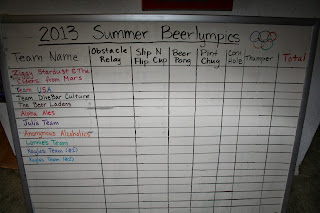 2013 Summer Beerlympics
Team Name Obstacle Relay Slip N Flip Cup Beer Pong Pint Chug Thumper Total
Ziggy Stardust & The
Ciders from Mars
Team USA
Team DiveBar Culture
The Beer Ladens
Alpha Ales
Julia Team
Anonymous Alcoholics
Lonnies Team
Kayles Team (#1)
Kayles Team (#2)